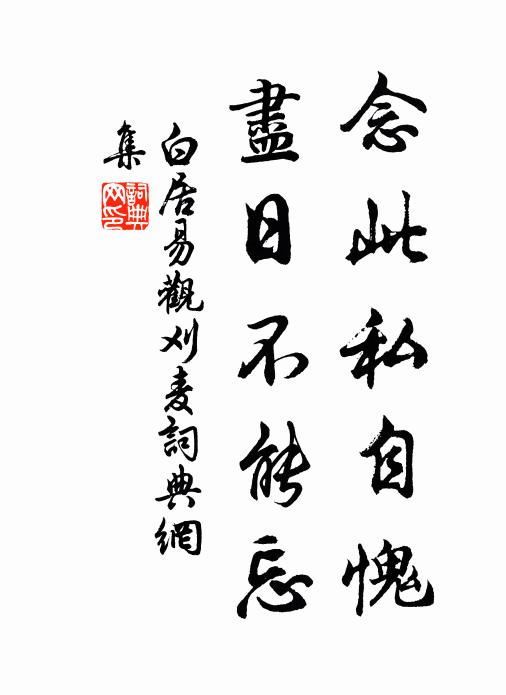 念此私自愧
盡日不能忘
白居易觀刈麦詞典網
集
詞典
网印